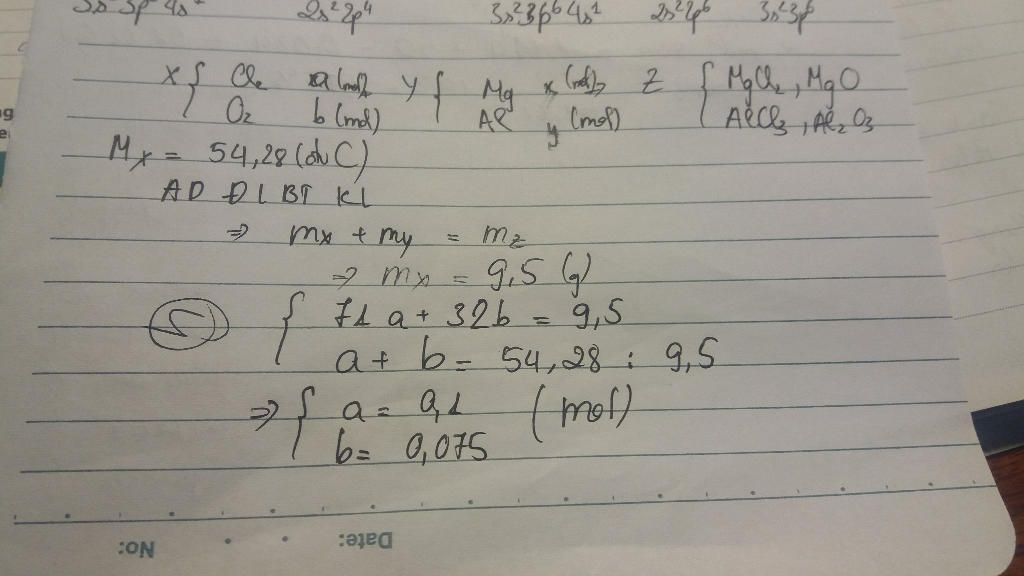 3s²3p⁶4s² 2s²2p⁴ 3s²3p⁶4s¹ 2s²2p⁶ 3s²3p⁶
X { Cl₂ a (mol), Y { Mg x (mol), Z { MgCl₂, MgO
O₂ b (mol) Al y (mol) AlCl₃, Al₂O₃
Mx = 54,28 (đvC)
AD ĐL BT KL
⇒ mx + my = mz
⇒ mx = 9,5 (g)
{ 71a + 32b = 9,5
a + b = 54,28 : 9,5
⇒ { a = 0,1 (mol)
b = 0,075
No: Date: